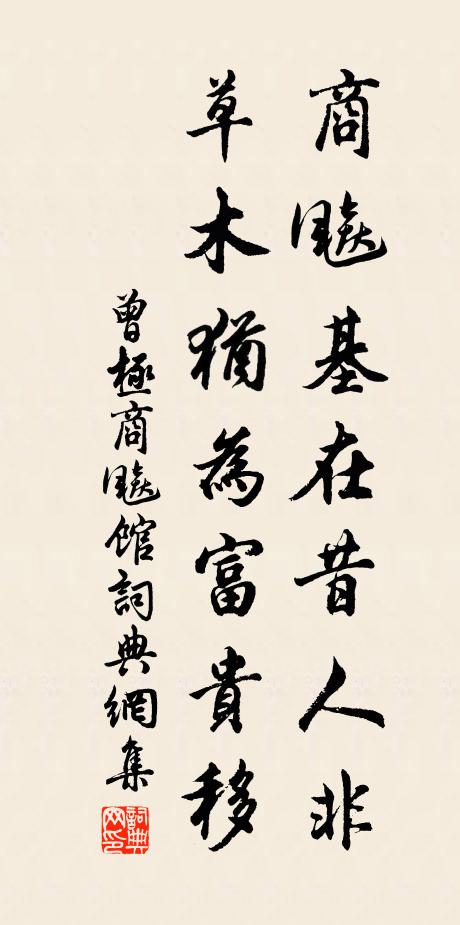 商飈基在昔人非
草木猶為富貴移
曾極商飈館詞典網集
詞典网印